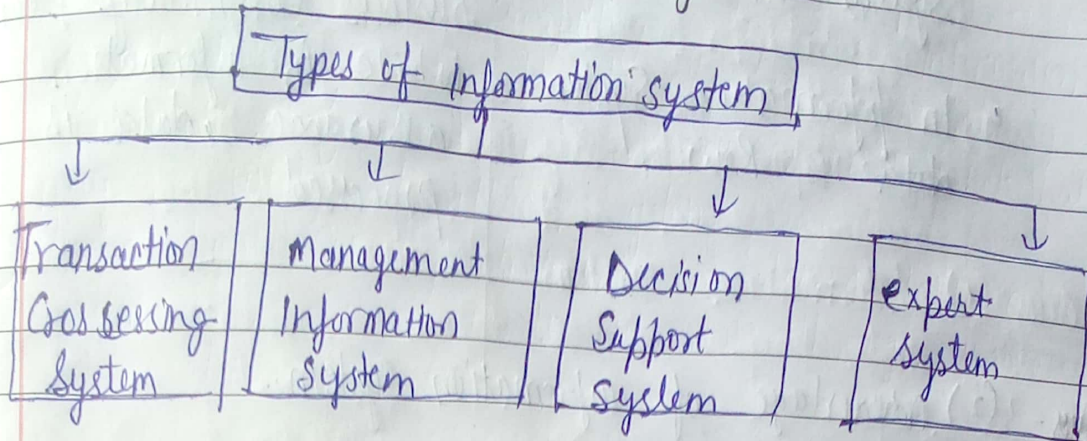 Types of Information system
Transaction
Crossessing
System
Management
Information
System
Decision
Support
System
expert
system